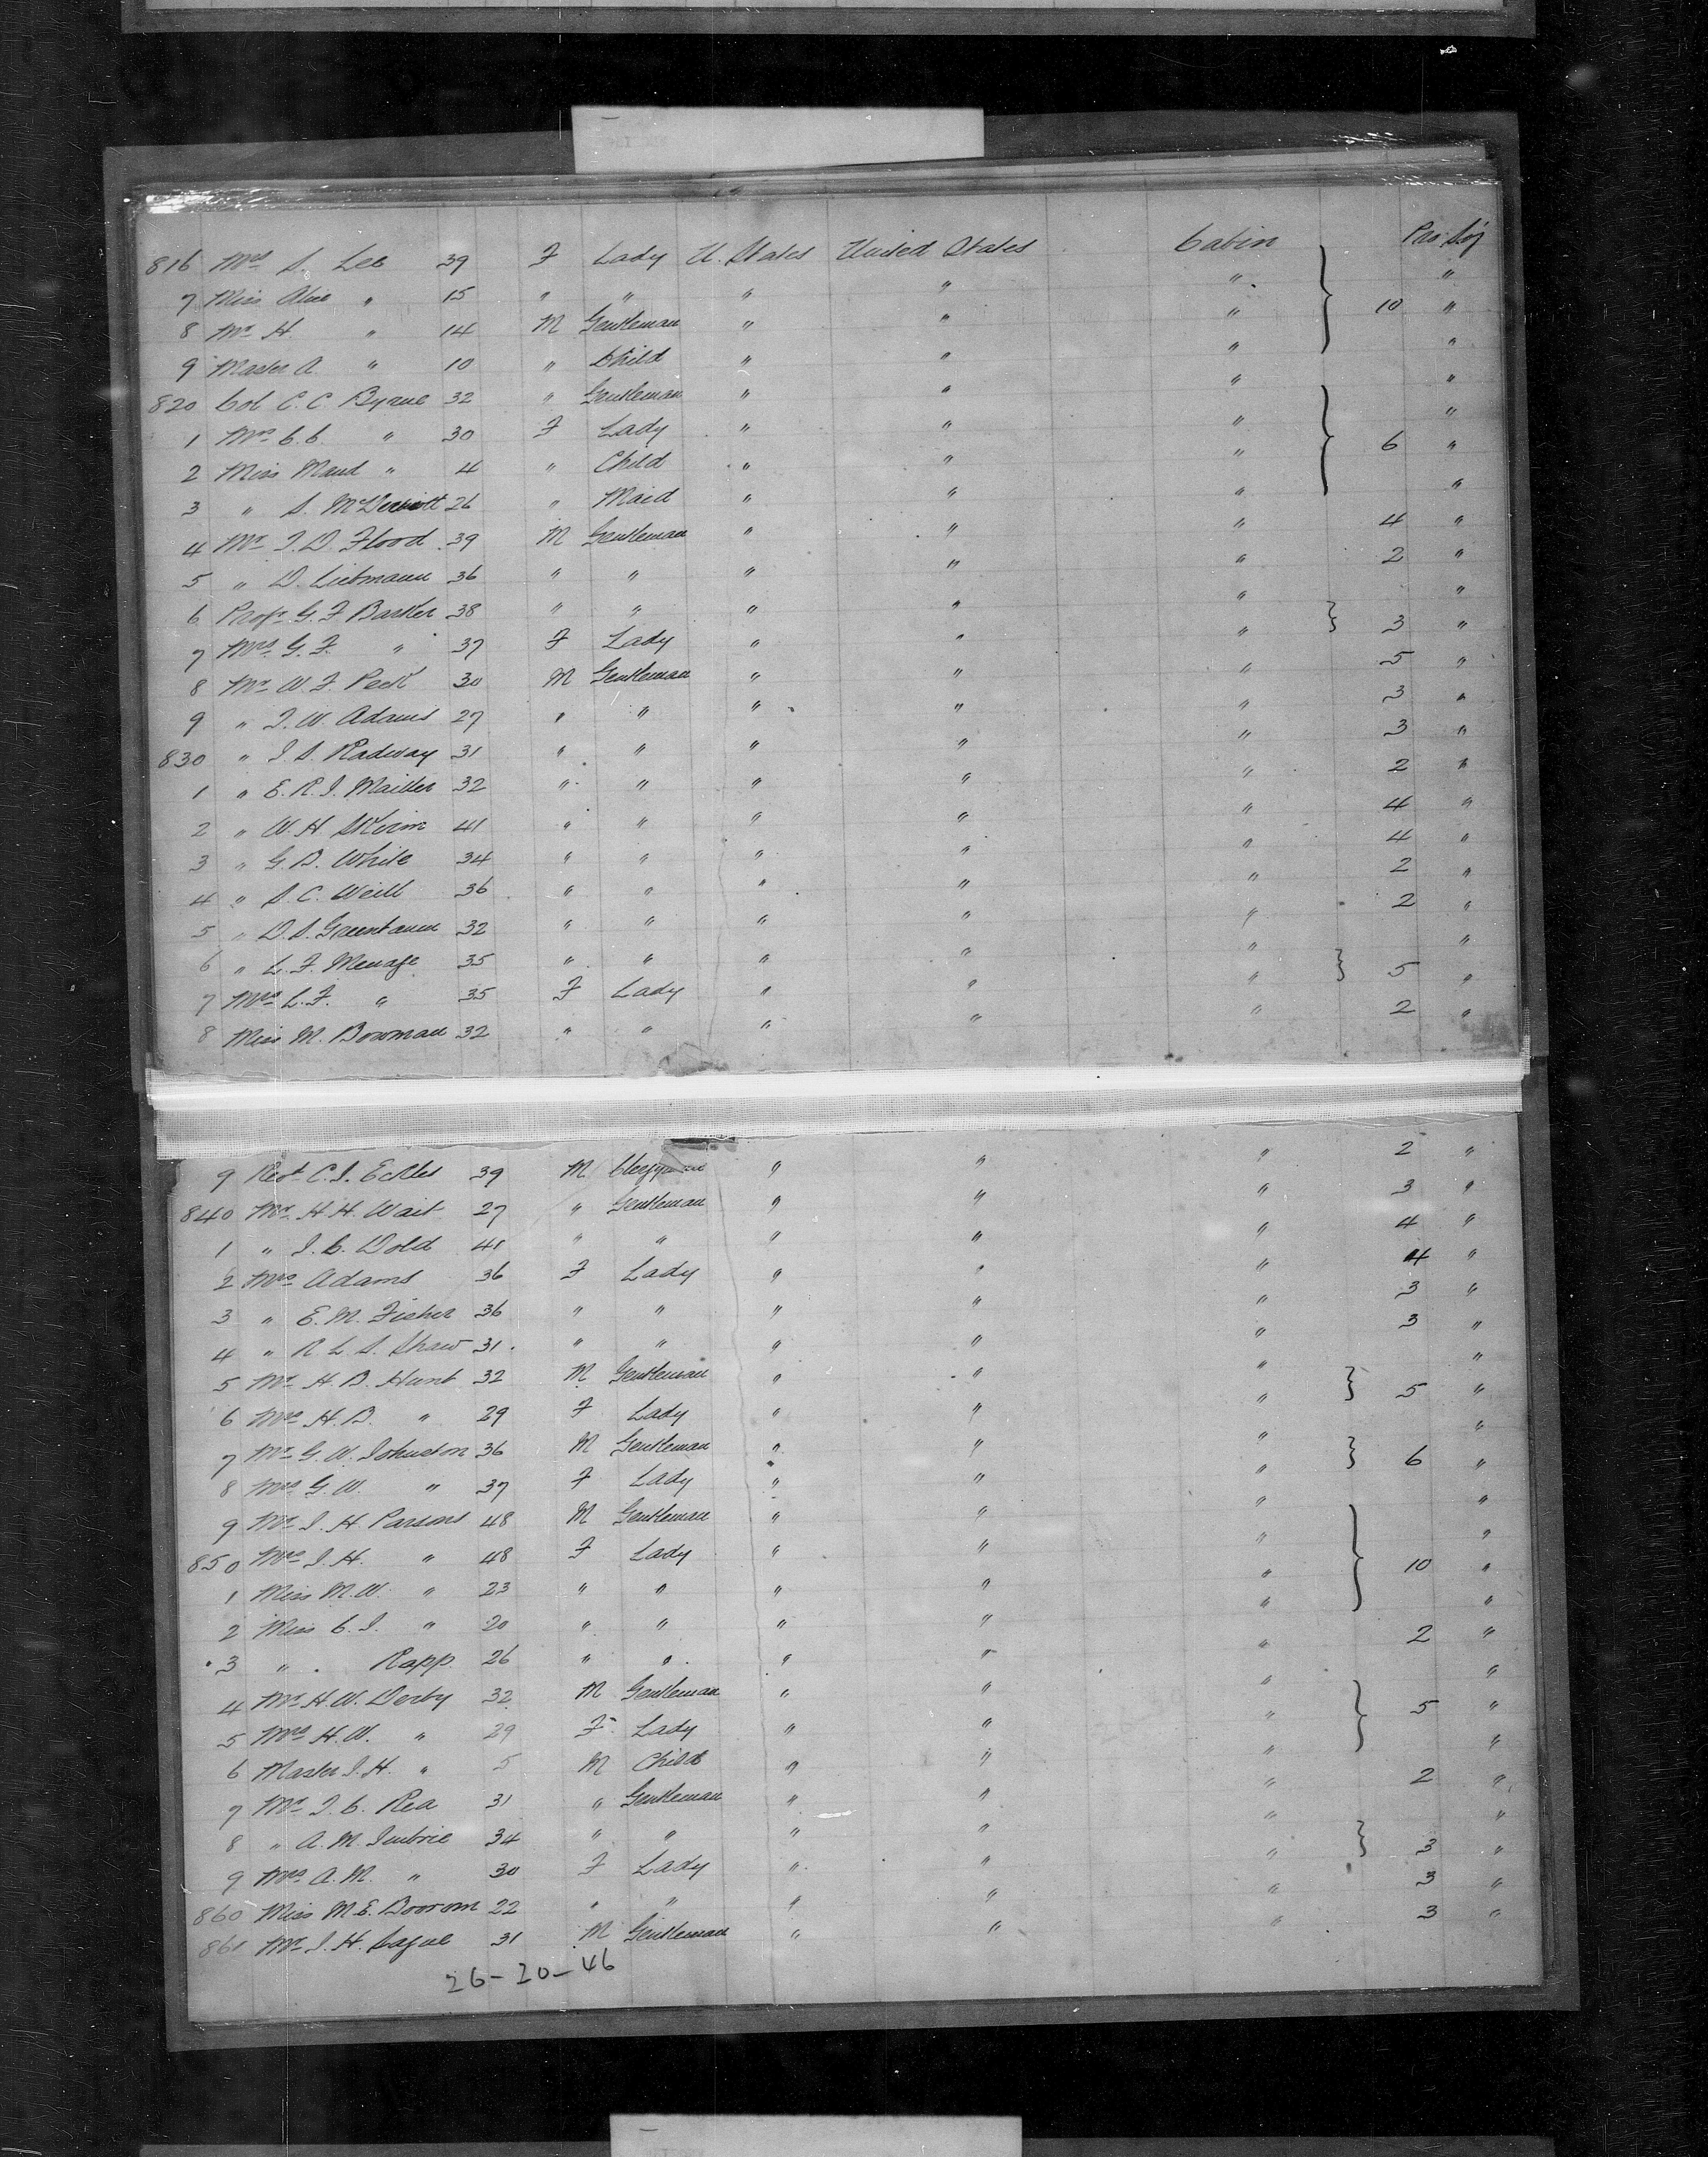 816 Mrs S. Lee 39 F Lady U. States United States Cabin Pro: Soj
7 Miss Alice " 15 " " " " " "
8 Mr H. " 14 M Gentleman " " " 10 "
9 Master A " 10 " Child " " " "
820 Col C. C. Byrne 32 " Gentleman " " " "
1 Mrs C. C. " 30 F Lady " " " "
2 Miss Maud " 4 " Child " " " 6 "
3 " S. McDermott 26 " Maid " " " "
4 Mr J. D. Flood 39 M Gentleman " " " 4 "
5 " D. Liebmann 36 " " " " " 2 "
6 Profr G. F Barker 38 " " " " " "
7 Mrs G. F. " 37 F Lady " " " 3 "
8 Mr W. F. Peck 30 M Gentleman " " " 5 "
9 " J. W. Adams 27 " " " " " 3 "
830 " J. S. Radway 31 " " " " " 3 "
1 " E. R. J. 32 " " " " " 2 "
2 " W. H Skirm 41 " " " " " 4 "
3 " G. B. White 34 " " " " " 4 "
4 " S. C. Weill 36 " " " " " 2 "
5 " D. S. Greenbaum 32 " " " " " 2 "
6 " L. F. Menage 35 " " " " " "
7 Mrs L. F. " 35 F Lady " " " 5 "
8 Miss M. Bowman 32 " " " " " 2 "
9 Revd C. J. Eckles 39 M Clergyman " " " 2 "
840 Mr H. H. Wait 27 " Gentleman " " " 3 "
1 " J. C. Dold 41 " " " " " 4 "
2 Mrs Adams 36 F Lady " " " 4 "
3 " E. M. Fisher 36 " " " " " 3 "
4 " R. L. S. Shaw 31 " " " " " 3 "
5 Mr H. B. Hunt 32 M Gentleman " " " "
6 Mrs H. B. " 29 F Lady " " " 5 "
7 Mr G. W. Johnston 36 M Gentleman " " " "
8 Mrs G. W. " 37 F Lady " " " 6 "
9 Mr J. H. Parsons 48 M Gentleman " " " "
850 Mrs J. H. " 48 F Lady " " " "
1 Miss M. W. " 23 " " " " " 10 "
2 Miss C. J. " 20 " " " " " "
3 " Rapp 26 " " " " " 2 "
4 Mr H. W. Derby 32 M Gentleman " " " "
5 Mrs H. W. " 29 F Lady " " " 5 "
6 Master J. H. " 5 M Child " " " "
7 Mr J. C. Rea 31 " Gentleman " " " 2 "
8 " A. M. Imbrie 34 " " " " " "
9 Mrs A. M. " 30 F Lady " " " 3 "
860 Miss M. E. Boorom 22 " " " " " 3 "
861 Mr J. H. Sague 31 M Gentleman " " " 3 "
26-20-46